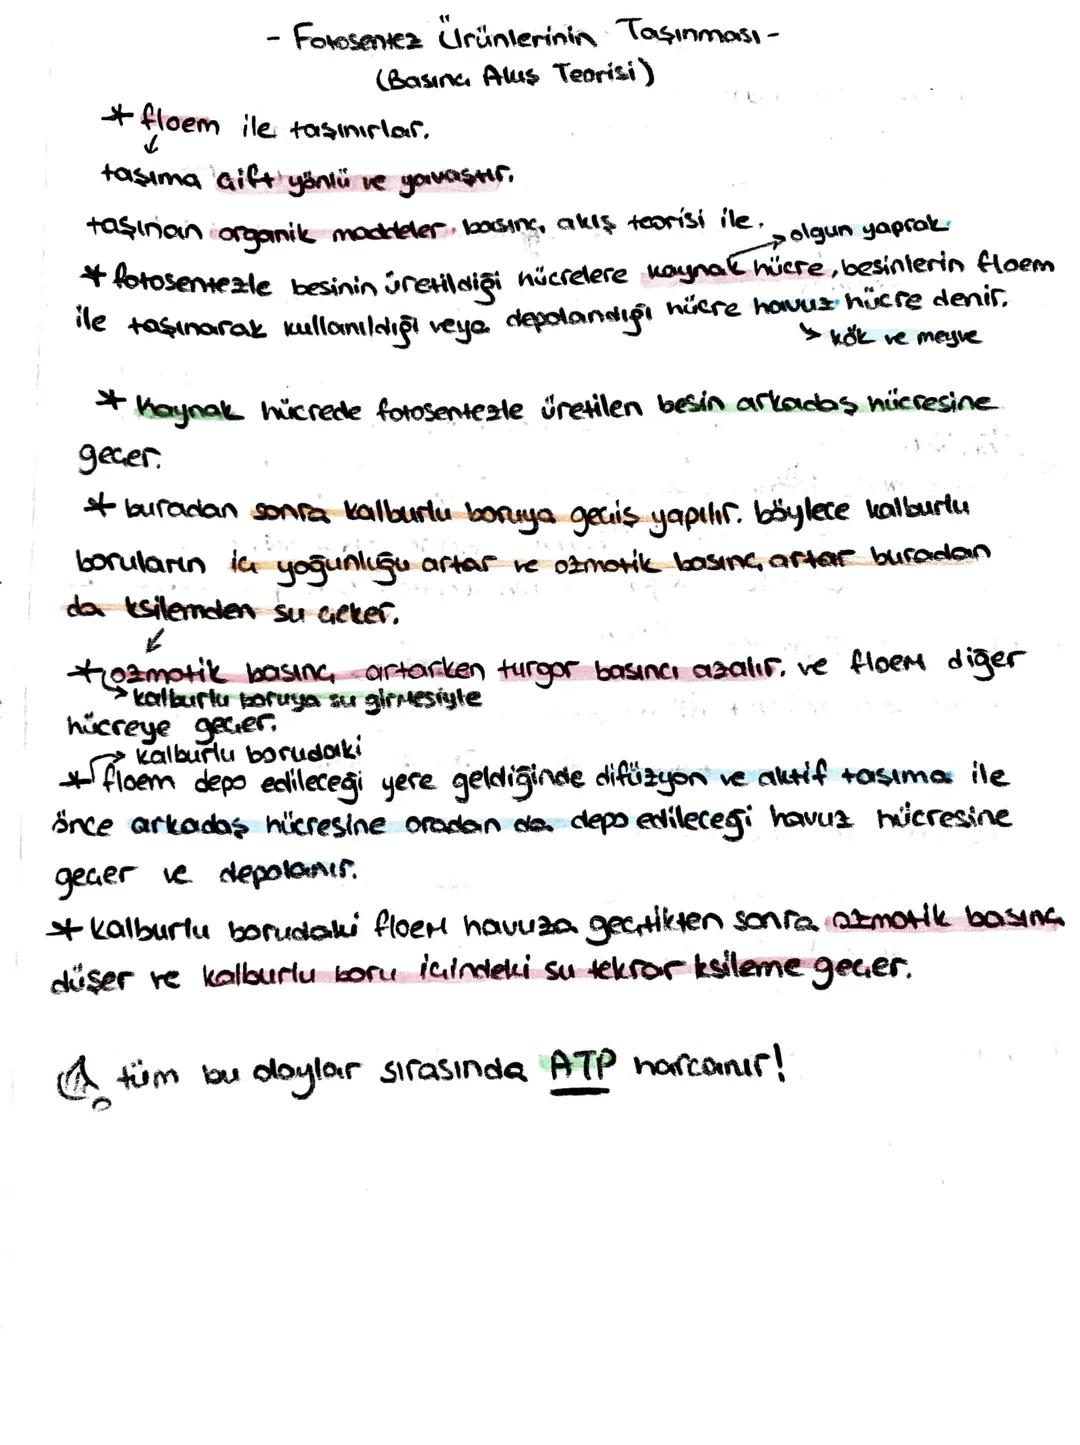 - Fotosentez Ürünlerinin Taşınması -
(Basınç Akış Teorisi)
* floem ile taşınırlar.
↓
taşıma çift yönlü ve yavaştır.
taşınan organik maddeler basınç akış teorisi ile.
→ olgun yaprak
* fotosentezle besinin üretildiği hücrelere kaynak hücre, besinlerin floem
ile taşınarak kullanıldığı veya depolandığı hücre havuz hücre denir.
→ kök ve meyve
* Kaynak hücrede fotosentezle üretilen besin arkadaş hücresine
geçer.
* buradan sonra kalburlu boruya geçiş yapılır. böylece kalburlu
boruların içi yoğunluğu artar ve ozmotik basınç artar buradan
da ksilemden su çeker.
↓
* ozmotik basınç artarken turgor basıncı azalır. ve floem diğer
→ kalburlu boruya su girmesiyle
hücreye geçer.
→ kalburlu borudaki
* floem depo edileceği yere geldiğinde difüzyon ve aktif taşıma ile
önce arkadaş hücresine oradan da depo edileceği havuz hücresine
geçer ve depolanır.
* kalburlu borudaki floem havuza geçtikten sonra ozmotik basınç
düşer ve kalburlu boru içindeki su tekrar ksileme geçer.
tüm bu olaylar sırasında ATP harcanır!